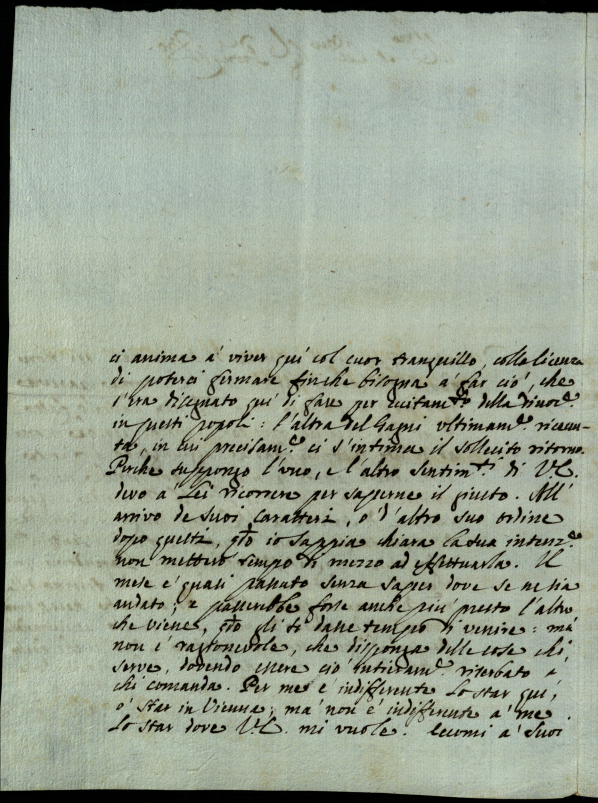 ci anima a' viver quì col cuor tranquillo, colla licenza
di poterci fermare finche bisogna a' far ciò, che
s'era disegnato quì di fare per eccitam.to della divoz.e
in questi popoli: l'altra del Gapni ultimam.e ricevu-
ta, in cui precisam.e ci s'intima il sollecito ritorno.
Perche suppongo l'uno, e l'altro sentim.to di V.E.
devo a' Lei ricorrere per saperne il giusto. All'
arrivo de suoi caratteri, o d'altro suo ordine
dopo questi, q.do io sappia chiara la sua intenz.e
non metterò tempo di mezzo ad effettuarla. Il
mese è quasi passato senza saper dove se ne sia
andato; e passerebbe forse anche più presto l'altro
che viene, q.do gli si dasse tempo di venire: mà
non è ragionevole, che disponga delle cose chi
serve, dovendo essere ciò intieram.e riserbato a'
chi comanda. Per me è indifferente lo star quì,
o' star in Vienna; mà non è indifferente a' me
lo star dove V.E. mi vuole. Eccomi a' suoi